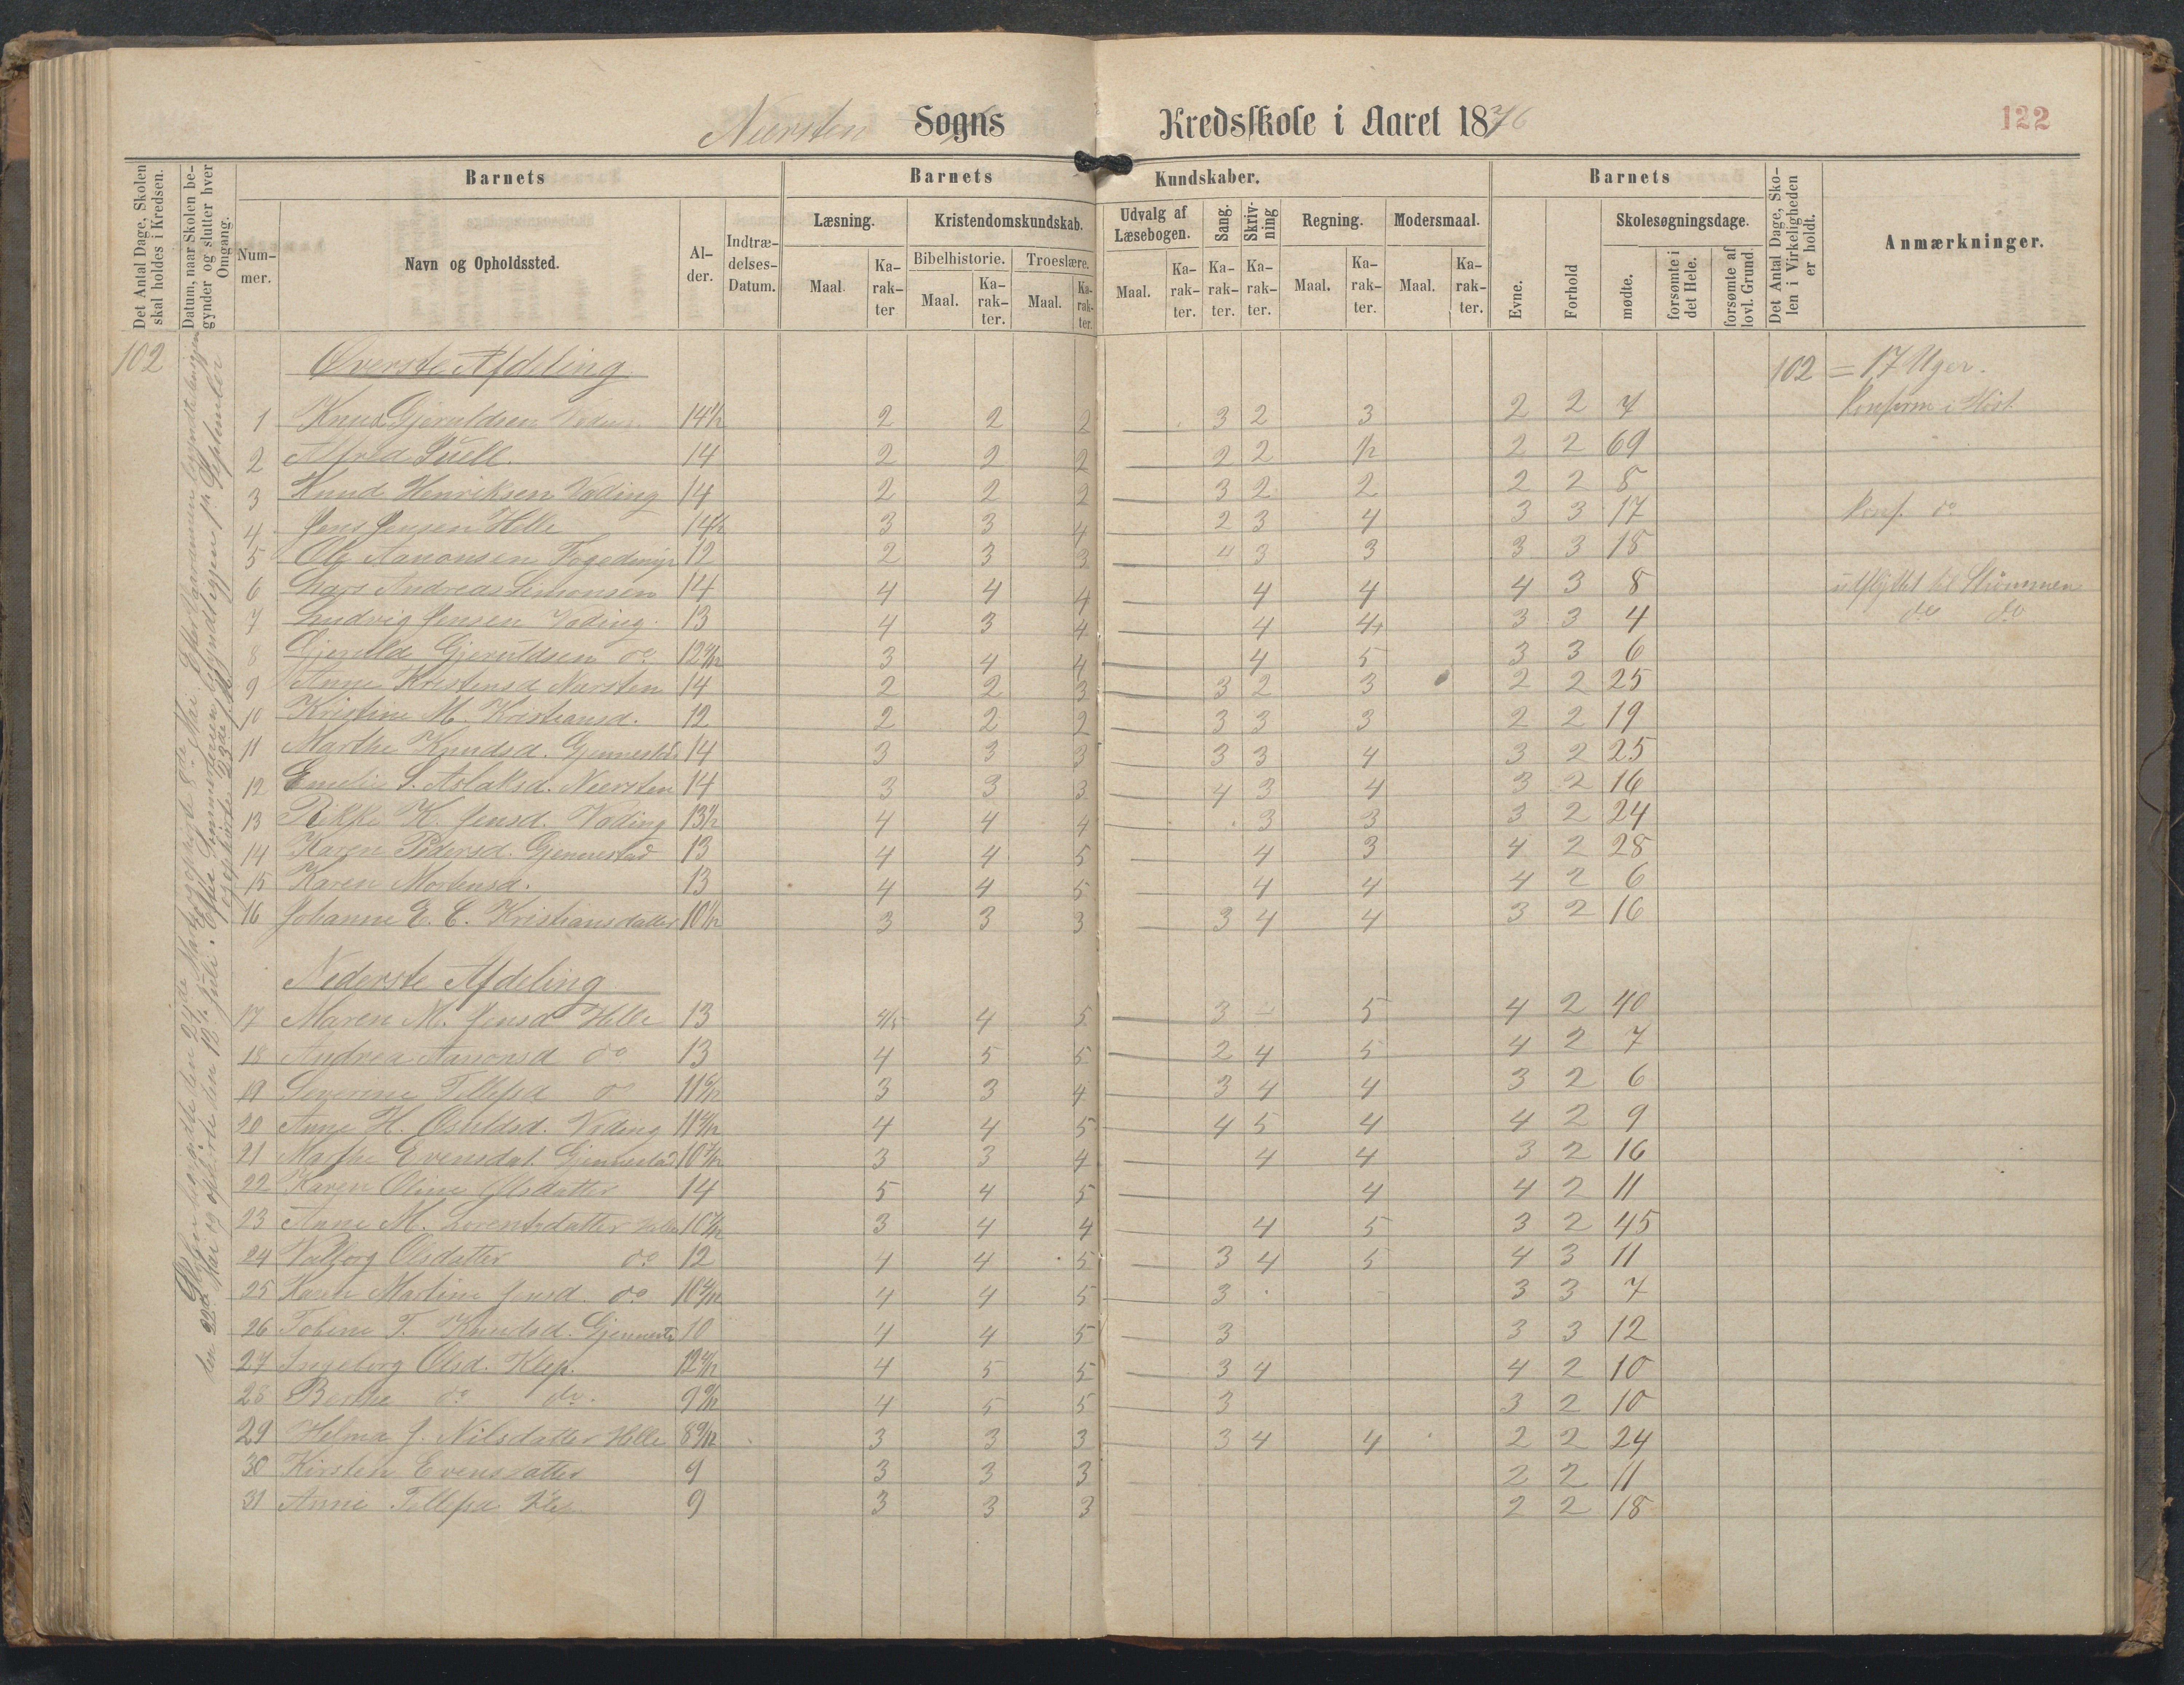 Neersten Sogns Kredsskole i Aaret 1876
122
Det Antal Dage, Skolen skal holdes i Kredsen.
Datum, naar Skolen begynder og slutter hver Omgang.
Barnets
Nummer.
Navn og Opholdssted.
Alder.
Indtrædelses-Datum.
Barnets Kundskaber.
Læsning.
Maal
Karakter
Kristendomskundskab.
Bibelhistorie.
Maal.
Karakter.
Troeslære.
Maal.
Karakter.
Udvalg af Læsebogen.
Maal.
Karakter.
Sang.
Karakter.
Skrivning
Karakter.
Regning.
Maal.
Karakter.
Modersmaal.
Maal.
Karakter.
Barnets
Evne.
Forhold
Skolesøgningsdage.
mødte.
forsømte i det Hele.
forsømte af lovl. Grund
Det Antal Dage, Skolen i Virkeligheden er holdt.
Anmærkninger.
102 Øverste Afdeling 102 = 17 Uger.
1 Knud Gjeruldsen 14½ 2 2 2 3 2 3 2 2 7 Konfirm i Høst
2 Alfred Puell. 14 2 2 2 2 2 ½ 2 2 69
3 Knud Henriksen Voding 14 2 2 2 3 2 2 2 2 8
4 Jens Jensen Helle 14½ 3 3 4 2 3 4 3 3 17 Konf. do
5 Ole Aanonsen Fogedmyr 12 2 3 3 4 3 3 3 3 18
6 Lars Andreas Simonsen 14 4 4 4 4 4 4 3 8 udflyttet til Strømmen
7 Ludvig Jensen Voding. 13 4 3 4 4 4+ 3 3 4 do do
8 Gjeruld Gjeruldsen do 12 3 4 4 4 5 3 3 6
9 Anne Kristensd Neersten 14 2 2 3 3 2 3 2 2 25
10 Kristine M. Kristiansd. 12 2 2 2 3 3 3 2 2 19
11 Marthe Knudsd. Gjennestad 14 3 3 3 3 3 4 3 2 25
12 Emelie S. Aslaksd. Neersten 14 3 3 3 4 3 4 3 2 16
13 Rikke K. Jensd. Voding 13½ 4 4 4 3 3 3 2 24
14 Karen Pedersd. Gjennestad 13 4 4 5 4 3 4 2 28
15 Karen Mortensd. 13 4 4 5 4 4 4 2 6
16 Johanne E. C. Kristiansdatter 10½ 3 3 3 3 4 4 3 2 16
Nederste Afdeling
17 Maren M. Jensd Helle 13 4/5 4 5 3 5 4 2 40
18 Andrea Aanonsd do 13 4 5 5 2 4 5 4 2 7
19 Severine Tellefsd do 11 3 3 4 3 4 4 3 2 6
20 Anne H. Osuldsd. Voding 11 4 4 5 4 5 4 4 2 9
21 Marthe Evensdat. Gjennestad 10 3 3 4 4 4 3 2 16
22 Karen Oline Olsdatter 14 5 4 5 4 4 2 11
23 Anne M. Lorentsdatter Helle 10 3 4 4 4 5 3 2 45
24 Valborg Olsdatter do 12 4 4 5 3 4 5 4 3 11
25 Karen Martine Jensd. do 10 4 4 5 3 3 3 7
26 Tobine T. Knudsd. Gjennestad 10 4 4 5 3 3 3 12
27 Ingeborg Olsd. Klep. 12 4 5 5 3 4 4 2 10
28 Berthe do do. 9 4 5 5 3 3 2 10
29 Helma J. Nilsdatter Helle 8 9/12 3 3 3 3 4 4 2 2 24
30 Kirsten Evensdatter 9 3 3 3 2 2 11
31 Anne Tellefsd Klep 9 3 3 3 2 2 18